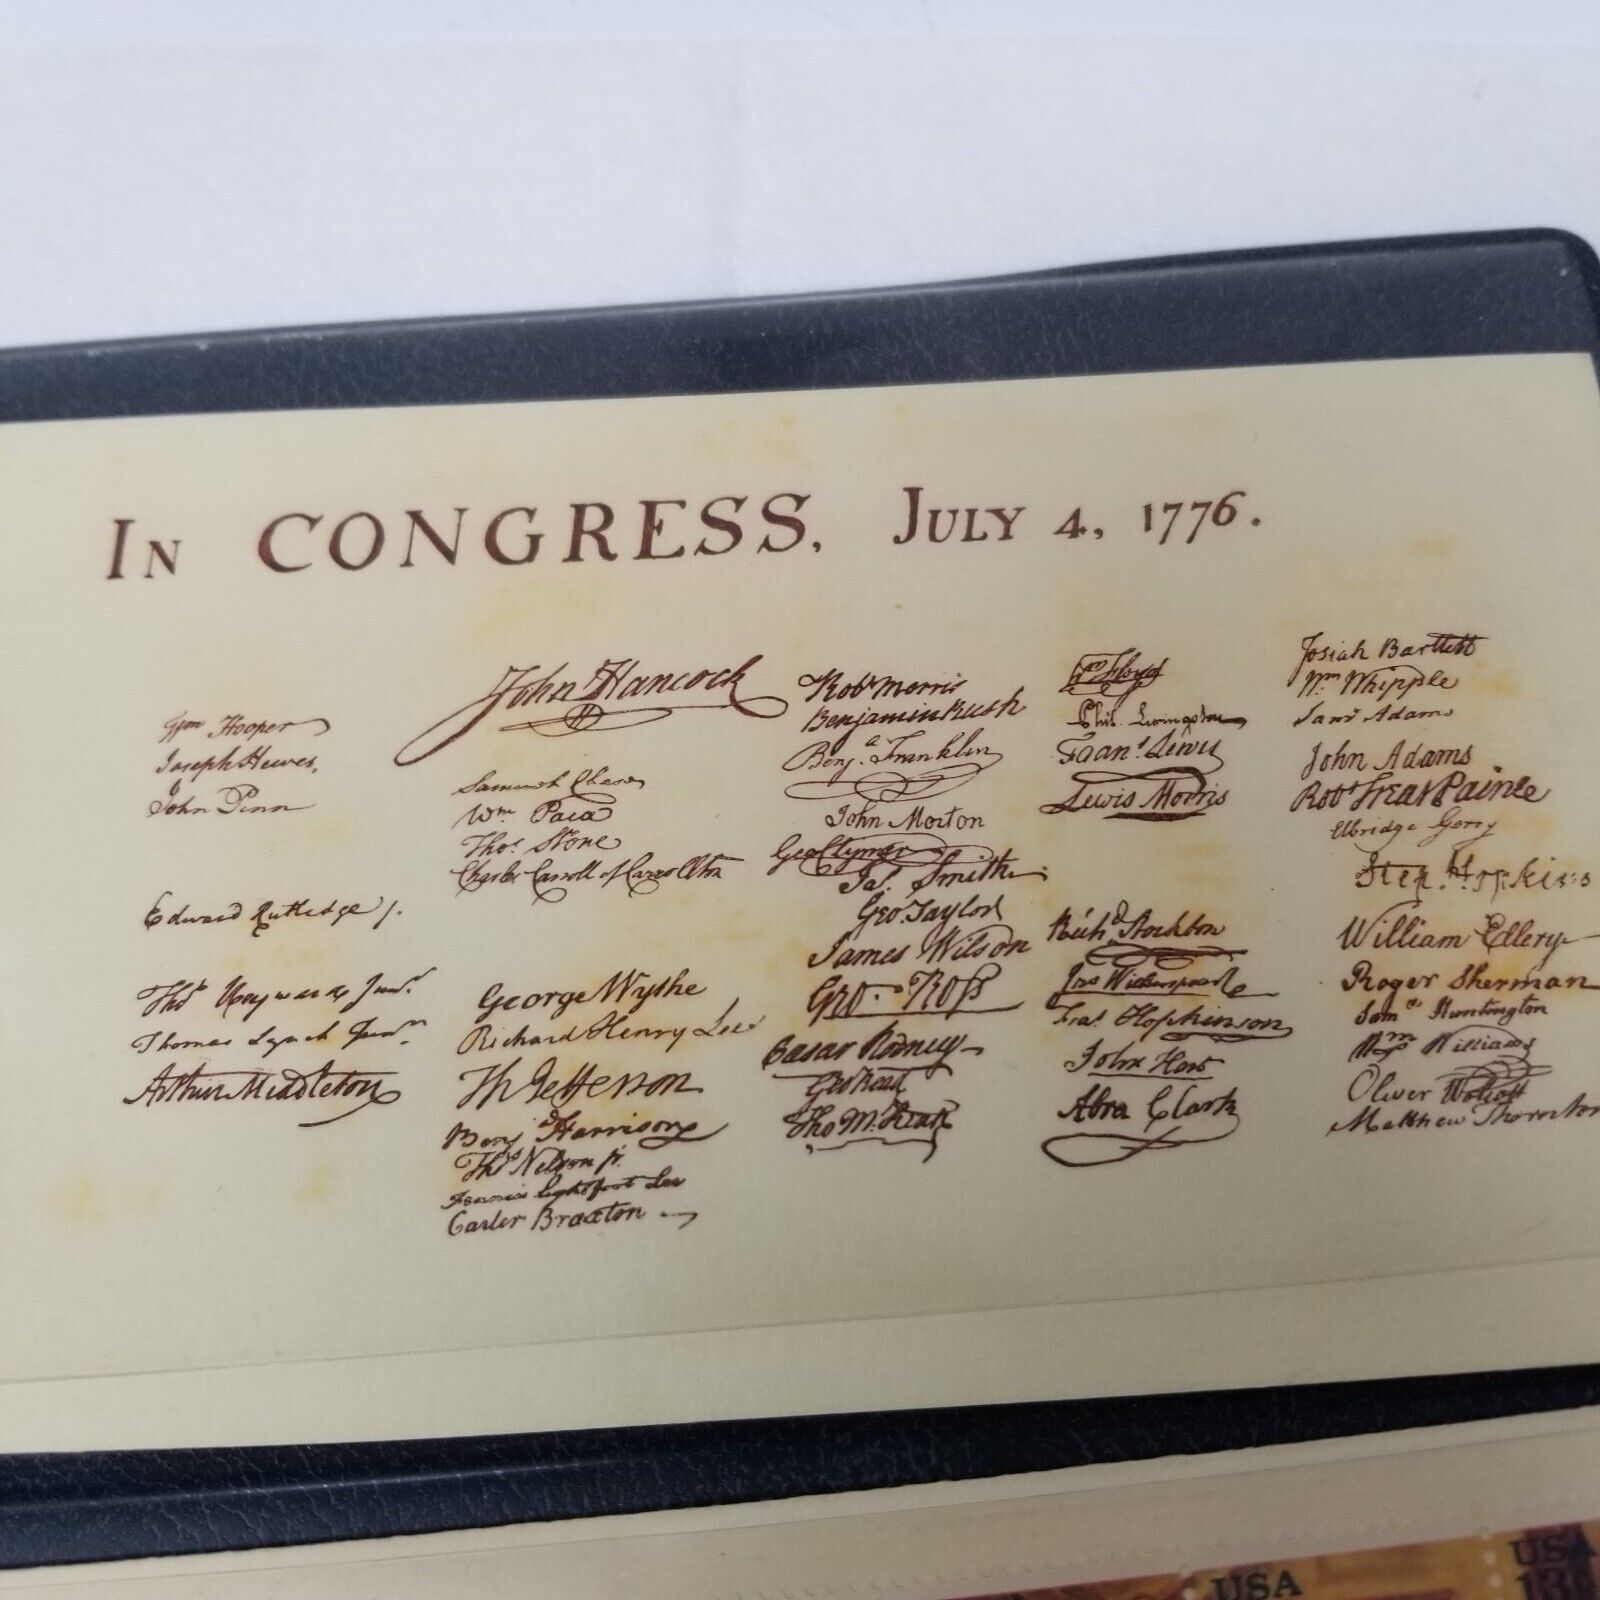 IN CONGRESS, JULY 4, 1776.
Wm Hooper
Joseph Hewes,
John Penn
Edward Rutledge /.
Thos Heyward Junr.
Thomas Lynch Junr.
Arthur Middleton
John Hancock
Samuel Chase
Wm. Paca
Thos. Stone
Charles Carroll of Carrollton
George Wythe
Richard Henry Lee
Th Jefferson
Benj Harrison
Thos Nelson jr.
Francis Lightfoot Lee
Carter Braxton
Robt Morris
Benjamin Rush
Benja. Franklin
John Morton
Geo Clymer
Jas. Smith
Geo. Taylor
James Wilson
Geo. Ross
Caesar Rodney
Geo Read
Tho M:Kean
Wm Floyd
Phil. Livingston
Frans. Lewis
Lewis Morris
Richd. Stockton
Jno Witherspoon
Fras. Hopkinson
John Hart
Abra Clark
Josiah Bartlett
Wm. Whipple
Saml Adams
John Adams
Robt Treat Paine
Elbridge Gerry
Step. Hopkins
William Ellery
Roger Sherman
Saml. Huntington
Wm. Williams
Oliver Wolcott
Matthew Thornton
USA
USA
13c